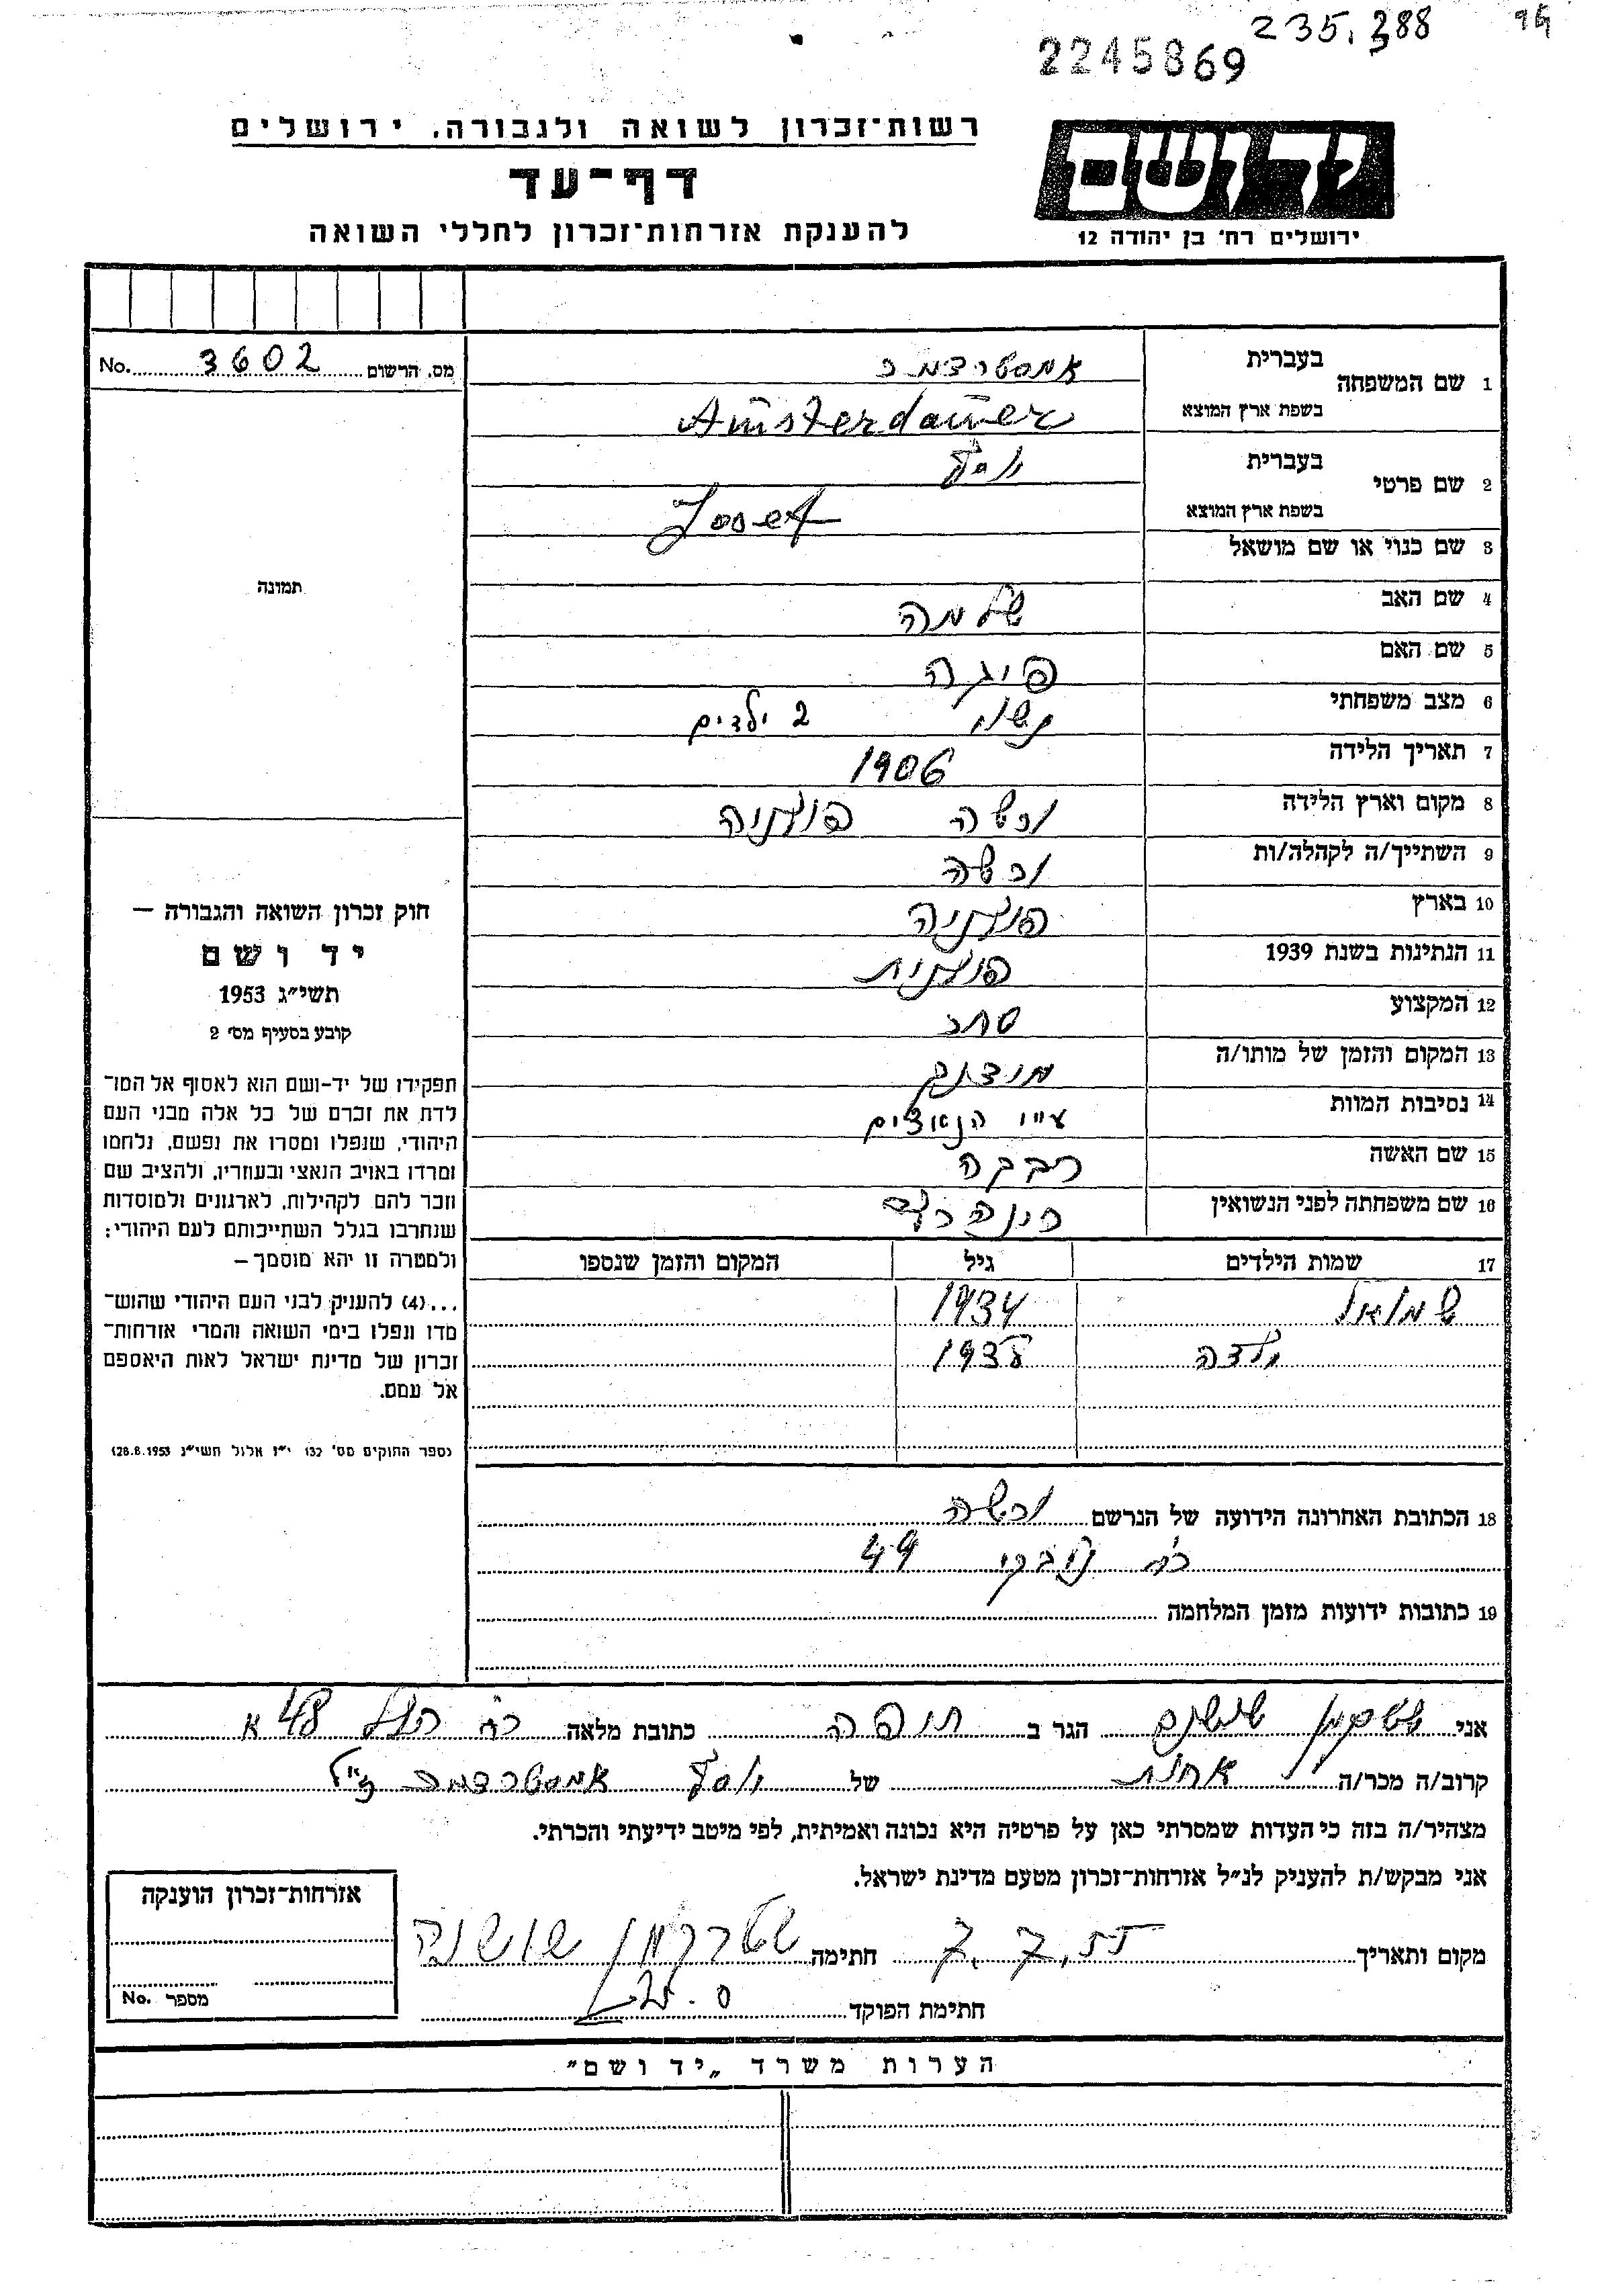 235.388
2245869
רשות־זכרון לשואה ולגבורה. ירושלים
דף־עד
להענקת אזרחות־זכרון לחללי השואה
ידושם
ירושלים רח' בן יהודה 12
מס. הרשום 3602 No.
1 שם המשפחה
בעברית אמסטרדמר
בשפת ארץ המוצא Amsterdamer
2 שם פרטי
בעברית יוסף
בשפת ארץ המוצא Josef
3 שם כנוי או שם מושאל
4 שם האב שלמה
5 שם האם פיגה
6 מצב משפחתי נשוי 2 ילדים
7 תאריך הלידה 1906
8 מקום וארץ הלידה ורשה פולניה
9 השתייך/ה לקהלה/ות ורשה
10 בארץ פולניה
11 הנתינות בשנת 1939 פולנית
12 המקצוע סוחר
13 המקום והזמן של מותו/ה
14 נסיבות המוות ע״י הנאצים
15 שם האשה רבקה
16 שם משפחתה לפני הנשואין
17 שמות הילדים גיל המקום והזמן שנספו
שמואל 1934
ילדה 1938
18 הכתובת האחרונה הידועה של הנרשם ורשה
רח 49
19 כתובות ידועות מזמן המלחמה
תמונה
חוק זכרון השואה והגבורה –
יד ושם
תשי״ג 1953
קובע בסעיף מס׳ 2
תפקידו של יד-ושם הוא לאסוף אל המו־
לדת את זכרם של כל אלה מבני העם
היהודי, שנפלו ומסרו את נפשם, נלחמו
ומרדו באויב הנאצי ובעוזריו, ולהציב שם
וזכר להם לקהילות, לארגונים ולמוסדות
שנחרבו בגלל השתייכותם לעם היהודי:
ולמטרה זו יהא מוסמך –
...(4) להעניק לבני העם היהודי שהוש־
מדו ונפלו בימי השואה והמרי אזרחות־
זכרון של מדינת ישראל לאות היאספם
אל עמם.
(ספר החוקים מס׳ 132 י״ז אלול תשי״ג 28.8.1953)
אני שטרקמן שושנה הגר ב חיפה כתובת מלאה רח 48 א
קרוב/ה מכר/ה אחות של יוסף אמסטרדמר ז״ל
מצהיר/ה בזה כי העדות שמסרתי כאן על פרטיה היא נכונה ואמיתית, לפי מיטב ידיעתי והכרתי.
אני מבקש/ת להעניק לנ״ל אזרחות־זכרון מטעם מדינת ישראל.
מקום ותאריך 7.7.55 חתימה שטרקמן שושנה
חתימת הפוקד
אזרחות־זכרון הוענקה
מספר No.
הערות משרד „יד ושם״